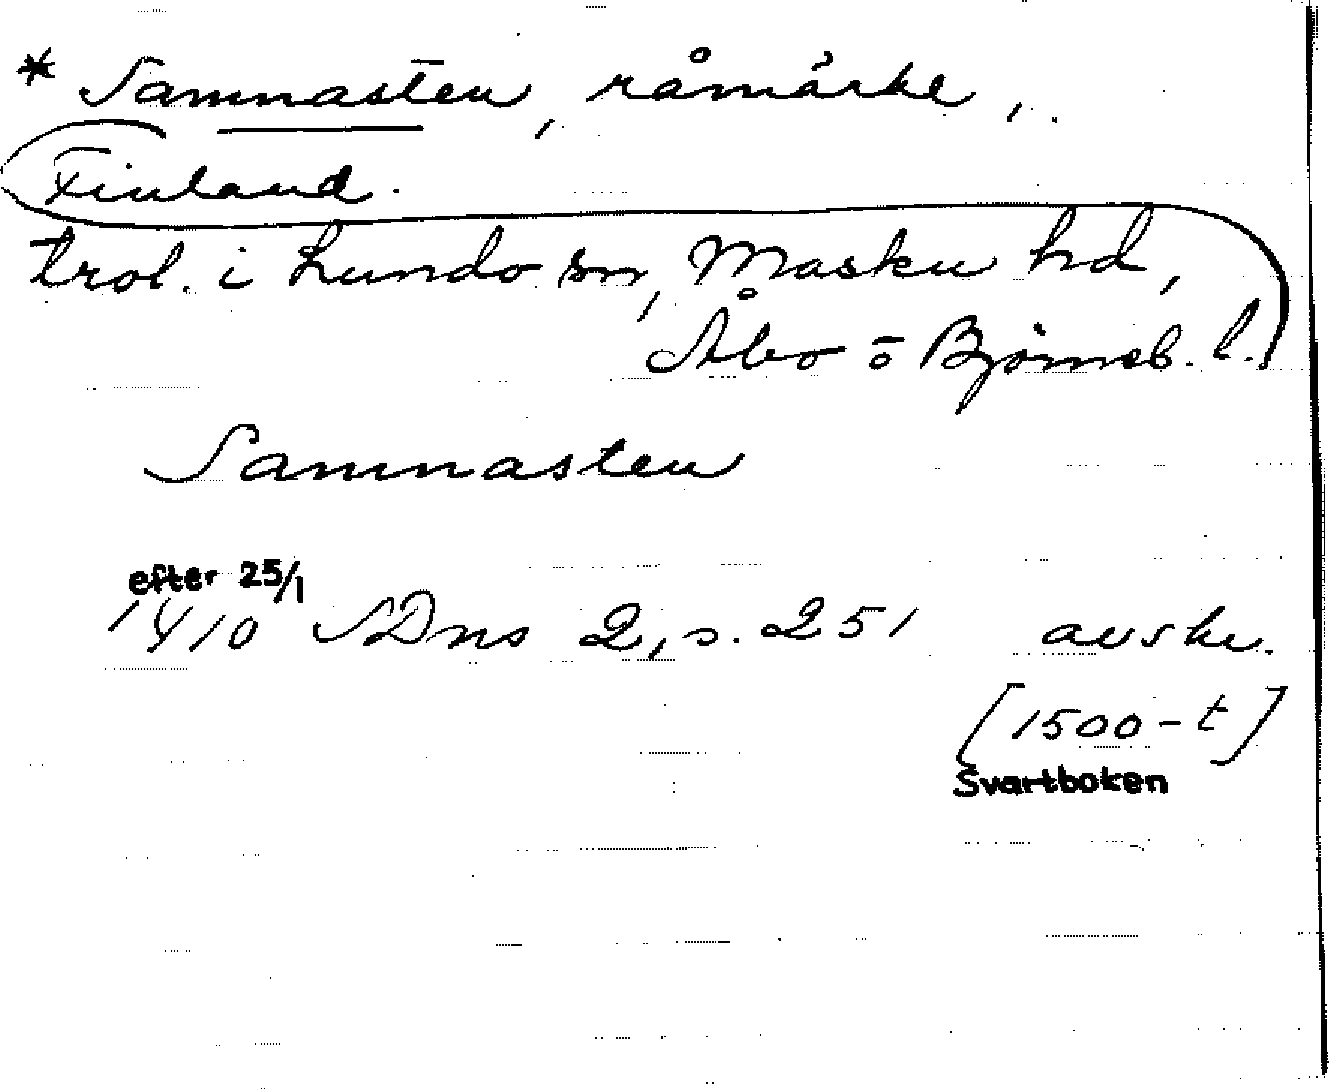 * Samnasten, råmärke,.
Finland.
trol. i Lundo sn, Masku hd,
Åbo o Björneb. l.
Samnasten
efter 25/1
1410 SDns 2, s. 251 avskr.
[1500-t]
Svartboken